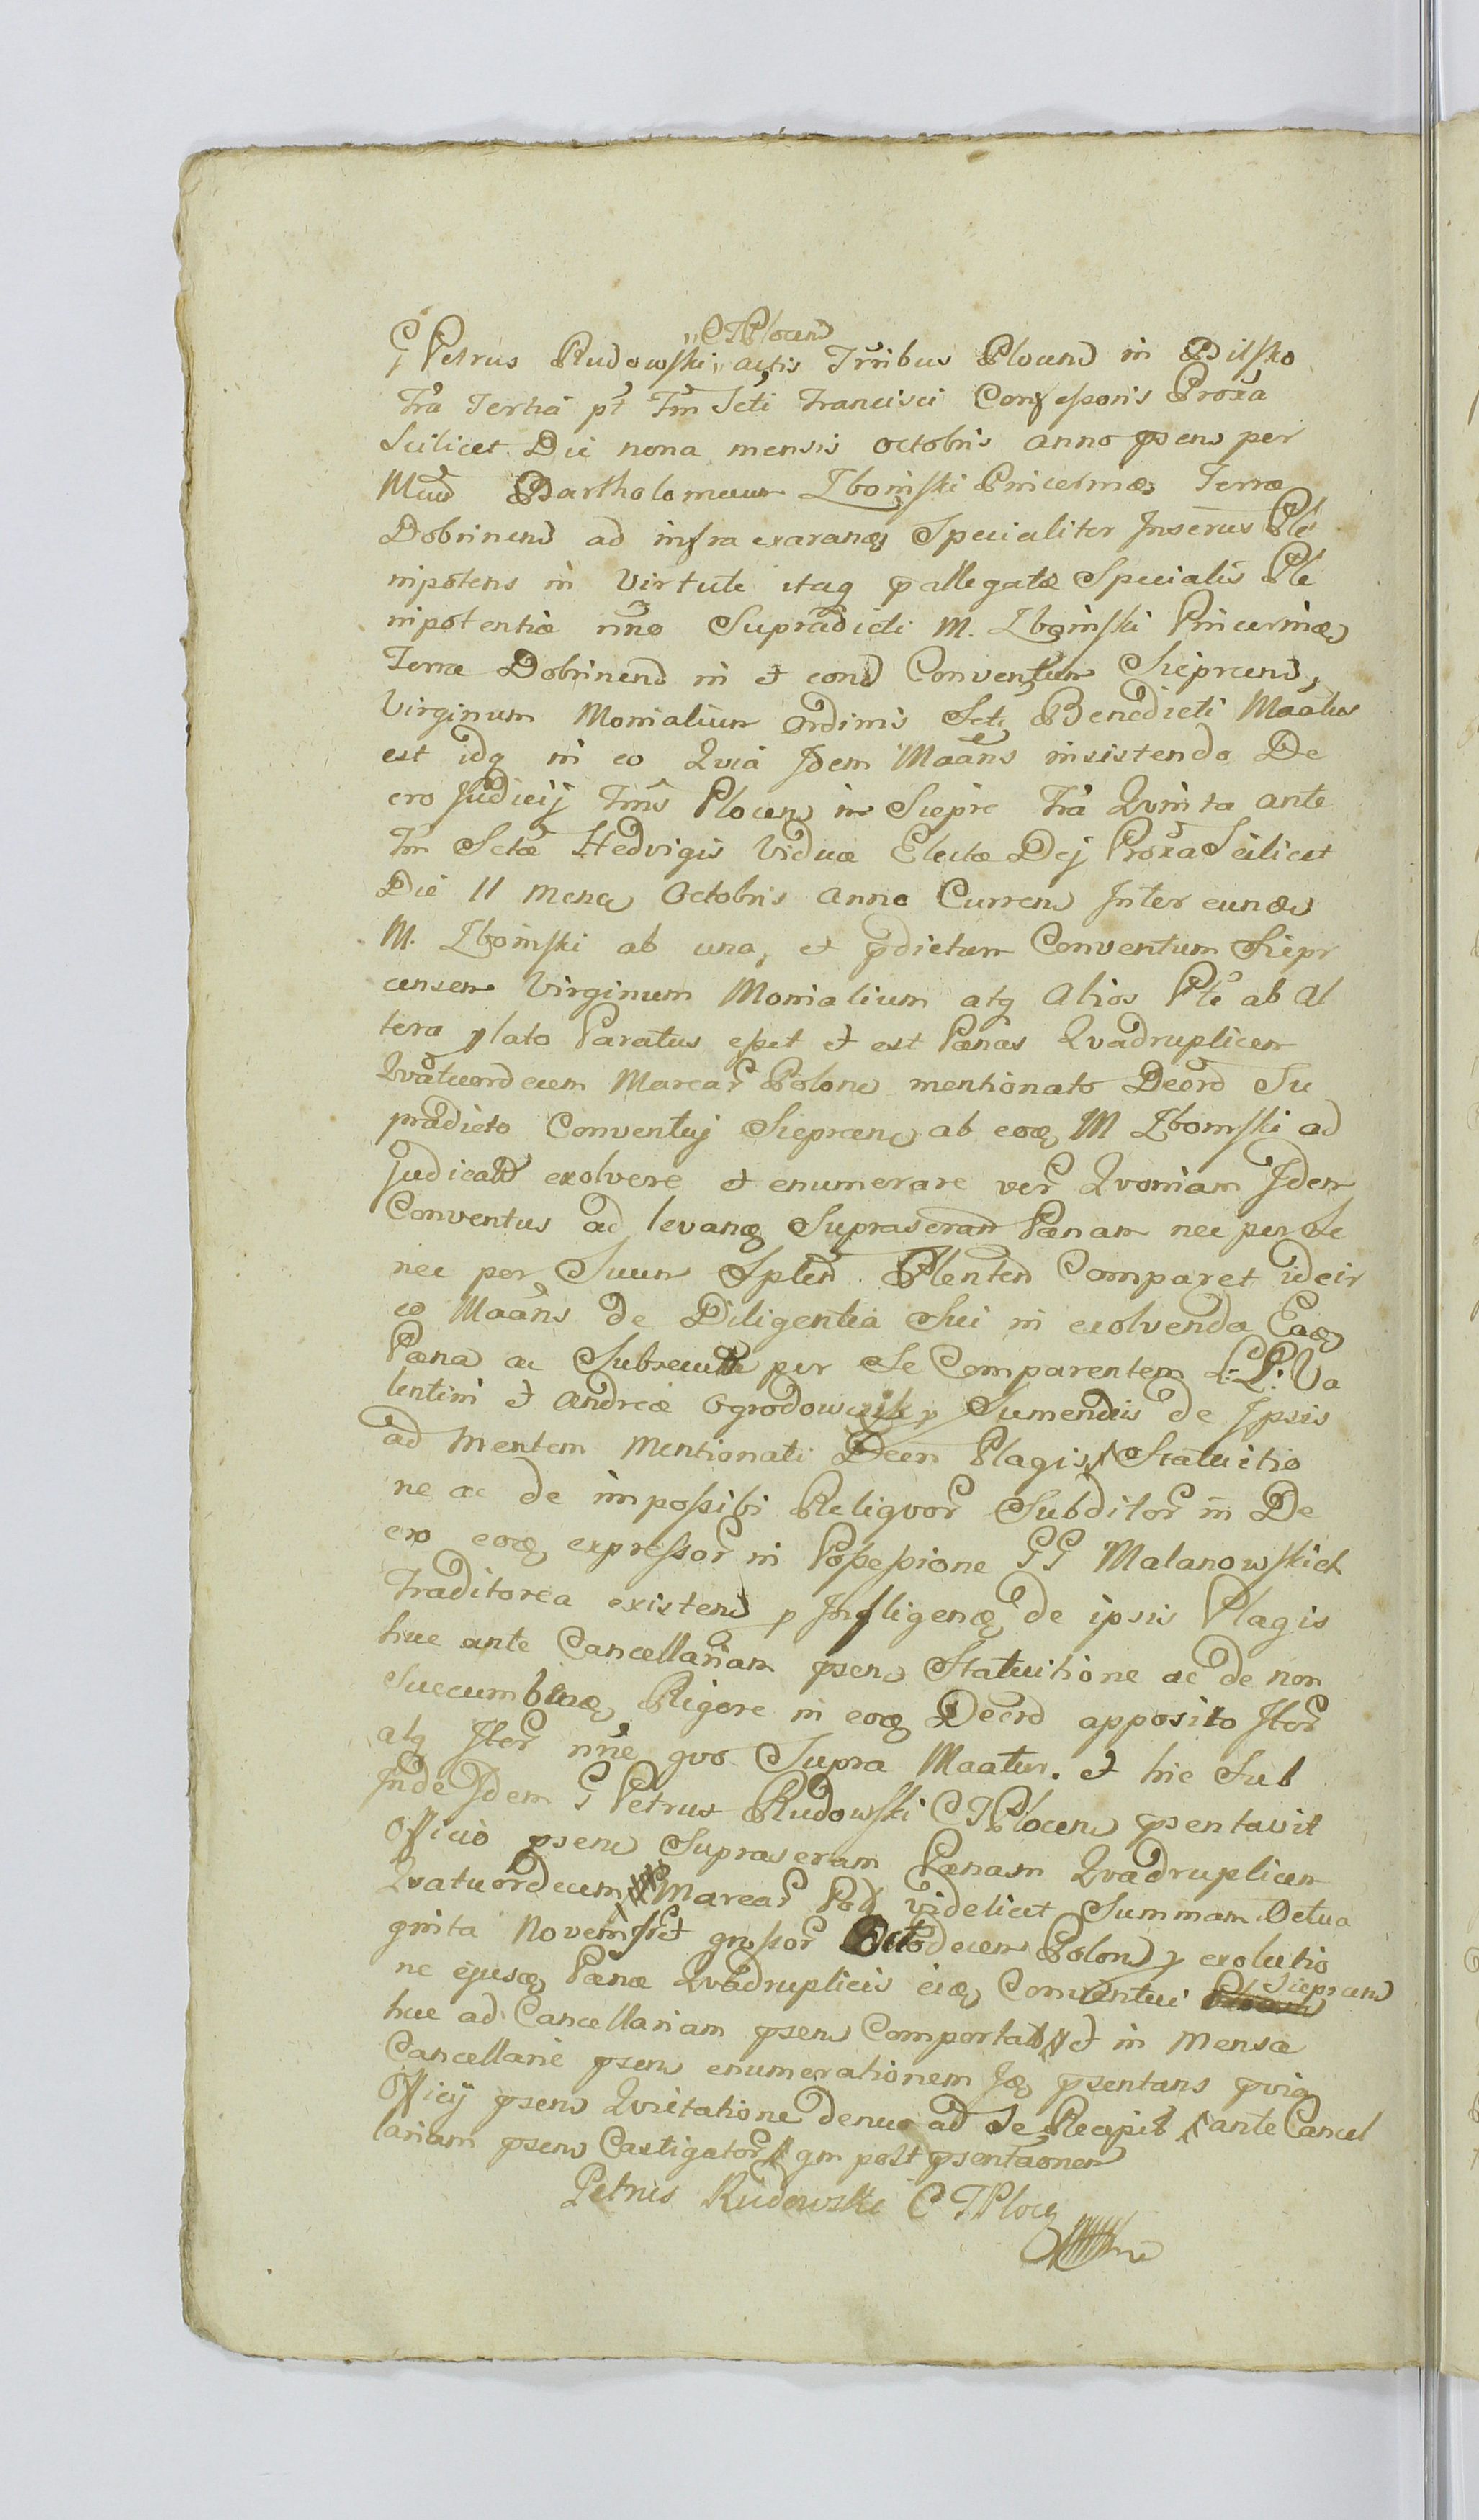 CTPlocen
G Petrus Rudowski actis Trribus Plocens in Bilsko
fra Tertia pt Fm Scti Francisci Confessoris Proxa
Scilicet Die nona mensis octobris anno psens per
Mcum Bartholomeum Zboinski Pincernam Terræ
Dobrinens ad infra exaranda Specialiter Inserus Ple
nipotens in virtute itaq pallegatæ Specialis Ple
nipotentiæ nno Supradicti M. Zboinski Pincernæ
Terræ Dobrinens in et con Conventum Sieprcens,
Virginum Monialium Ordinis Scti Benedicti Maatus
est idq in eo Quia Idem Maans insistendo De
cro Judicij Trris Plocens in Siepre fra Quinta ante
Fm Sctæ Hedvigis Viduæ Electæ Dej Proxa Scilicet
Die 11 mens Octobris Anno Currens Inter eundem
M. Zboinski ab una, et pdictum Conventum Siepr
censem Virginum Monialium atq Alios Pte ab Al
tera plato Paratus esset et est Pænas Quadruplicem
Quatuordecem Marcar Polon mentionato Decro Su
pradicto Conventuj Sieprcens ab eodem M Zboinski ad
judicatam exolvere et enumerare ver Quoniam Idem
Conventus ad levandam Suprascram Pænam nec per Se
nec per Suum Splem Plentem Comparet ideir
co Maans de Diligentia Sui in exolvenda Eadem
Pæna ac Subsecutte per Se Comparentem L:L: Va
lentini et Andreæ Ogrodowczik p Sumendis de Ipsis
ad mentem mentionati Decri Plagis Statuitio
ne ac de impossibi Reliquor Subditor in De
cro eodem expressor in Possessione GG Malanowskich
Traditorea existens p Infligendis de ipsis Plagis
huc ante Cancellariam psens Statuitione ac de non
Succumbendo Rigore in eodem Decro apposito Iter
atq Iter nne quo Supra Maatur. et hic Sub
Inde Idem G Petrus Rudowski CTPlocens psentavit
Officio psens Suprascram Pænam Quadruplicem
Quatuordecem Marcar Pol videlicet Summam Octua
ginta Novem fret grossor Octodecem Polon p exolutio
ne ejusdem Pænæ Quadruplicis eidem Conventui Sieprcens
huc ad Cancellariam psens Comportat et in Mensa
Cancellariæ psens enumerationem Idem psentans pvia
Officij psens Quietatione denuo ad Se Recepit ante Cancel
lariam psens Castigator qm post psentaonem
Petrus Rudowski C T Ploc